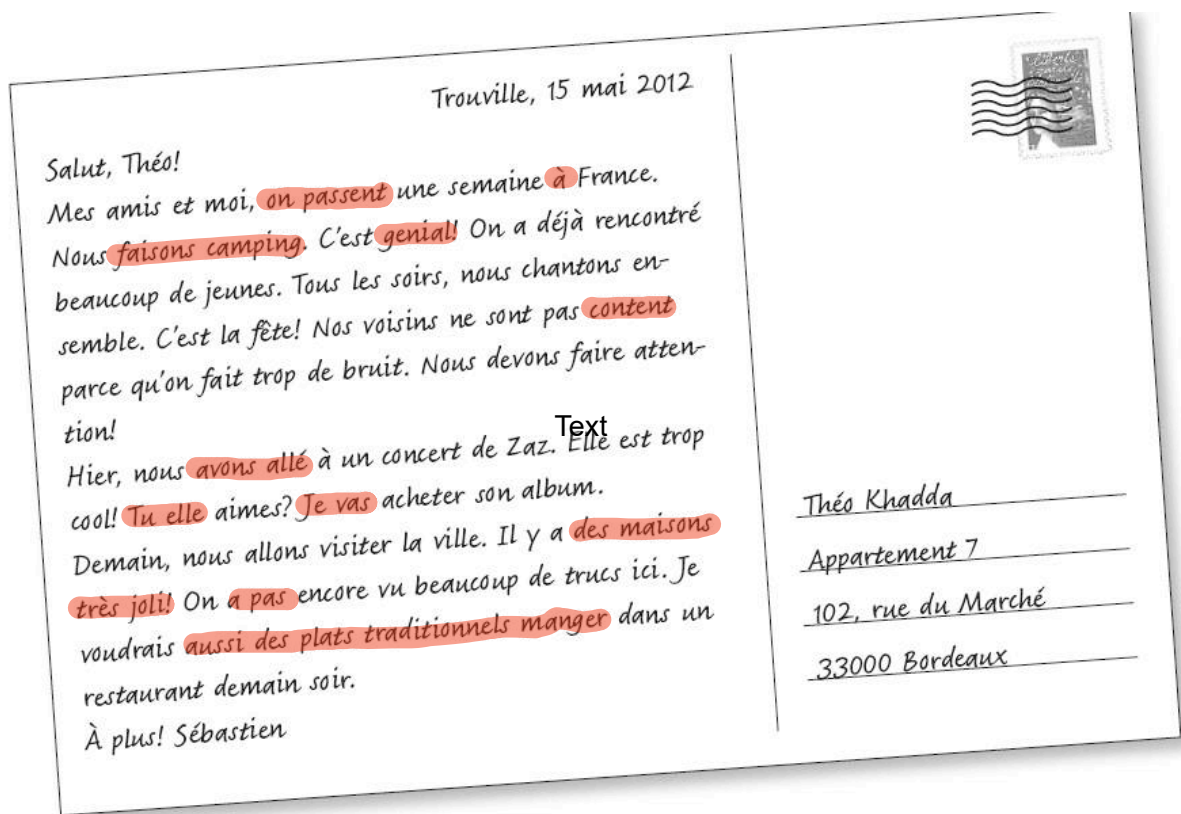 Trouville, 15 mai 2012
Salut, Théo!
Mes amis et moi, on passent une semaine à France.
Nous faisons camping. C'est genial! On a déjà rencontré
beaucoup de jeunes. Tous les soirs, nous chantons en-
semble. C'est la fête! Nos voisins ne sont pas content
parce qu'on fait trop de bruit. Nous devons faire atten-
tion!
Text
Hier, nous avons allé à un concert de Zaz. Elle est trop
cool! Tu elle aimes? Je vas acheter son album.
Demain, nous allons visiter la ville. Il y a des maisons
très joli! On a pas encore vu beaucoup de trucs ici. Je
voudrais aussi des plats traditionnels manger dans un
restaurant demain soir.
À plus! Sébastien
Théo Khadda
Appartement 7
102, rue du Marché
33000 Bordeaux